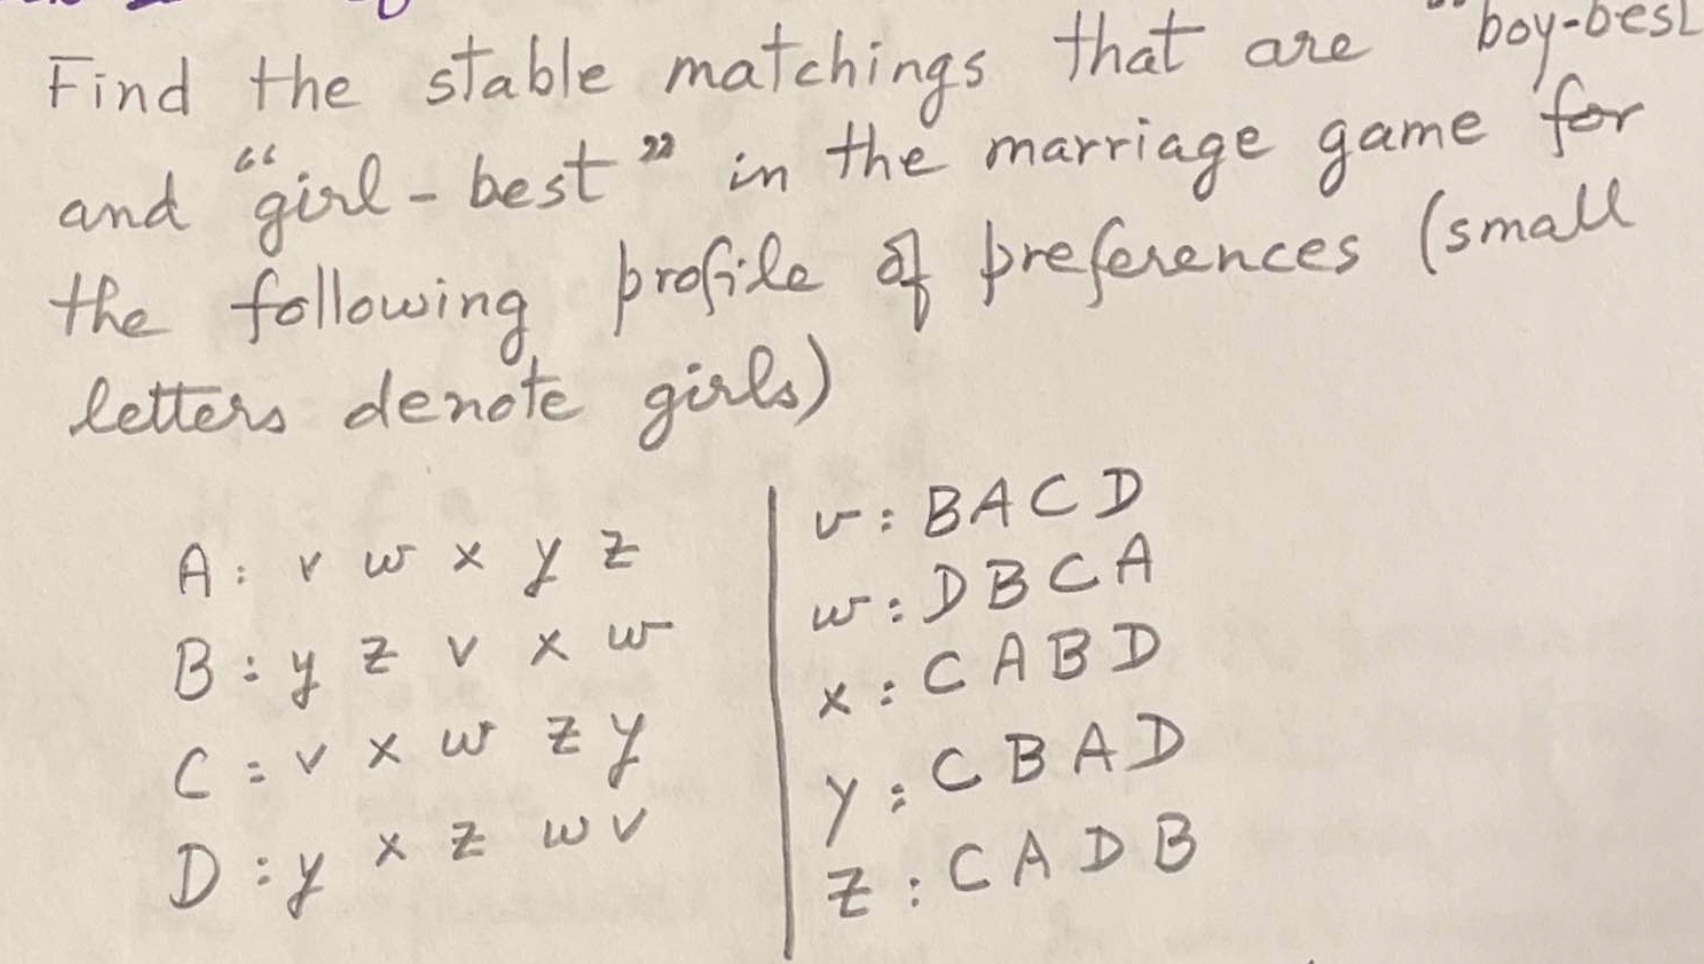 Find the stable matchings that are "boy-best
and "girl-best" in the marriage game for
the following profile of preferences (small
letters denote girls)
A: v w x y z
B: y z v x w
C: v x w z y
D: y x z w v
v: B A C D
w: D B C A
x: C A B D
y: C B A D
z: C A D B